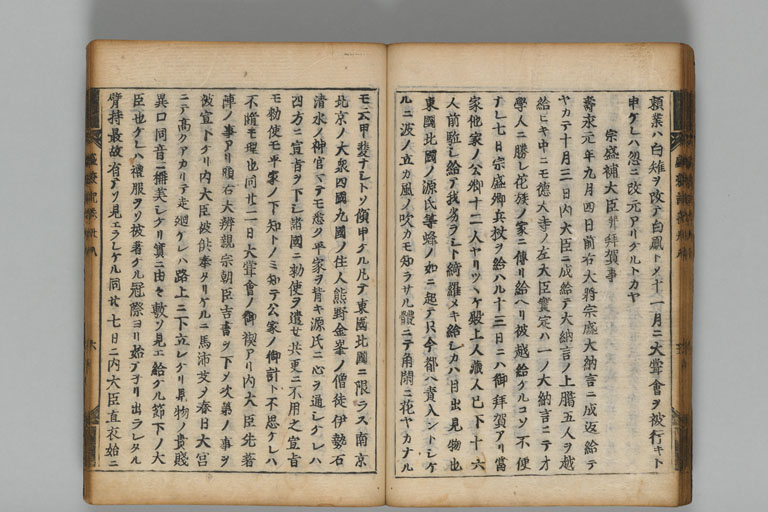 頼業ハ白雉ヲ改テ白鳳トメ十一月ニ大甞會ヲ被行キト
申ケレハ忽ニ改元アリケルトカヤ
宗盛補大臣卽拜賀事
壽永元年九月四日前右大將宗盛大納言ニ成返給テ
ヤカテ十月三日内大臣ニ成給テ大納言ノ上臈五人ヲ越
給ヒキ中ニモ德大寺ノ左大臣實定ハ一ノ大納言ニテ才
學人ニ勝レ花族ノ家ニ傳リ給ヘリ被越給ケルコソ不便
ナレ七日宗盛卿兵杖ヲ給ハル十三日ニハ御拜賀アリ當
家他家ノ公卿十二人ヤリツヽケ殿上人藏人已下十六
人前駈シ給テ我劣ラシト綺羅メキ給シカハ目出見物也
東國北國ノ源氏等蜂ノ如ニ起テ只今都ヘ責入ントシケ
ルニ波ノ立カ風ノ吹カモ知ラサル體ニテ角閙ニ花ヤカナル
モ云甲斐ナシトソ傾申ケル凡テ東國北國ニ限ラス南京
北京ノ大衆四國九國ノ住人熊野金峯ノ僧徒伊勢石
清水ノ神官マテモ悉ク平家ヲ背キ源氏ニ心ヲ通シケレハ
四方ニ宣旨ヲ下シ諸國ニ勅使ヲ遣セ共更ニ不用之宣旨
モ勅使モ平家ノ下知トノミ知テ公家ノ御計ト不思ケレハ
不隨モ理也同廿二日大甞會ノ御禊アリ内大臣先著
陣ノ事アリ頭右大辨親宗朝臣吉書ヲ下ス次第ノ事ヲ
被宣下ケリ内大臣被供奉タリケルニ馬沛艾ヲ春日大宮
ニテ高クアカリテ走廻ケレハ路上ニ下立レケリ見物ノ貴賤
異口同音ニ稱美シケリ實ニ由々敷ソ見エ給ケル節下ノ大
臣也ケレハ禮服ヲソ被著ケル冠際ヨリ始テ
臂持最故有テソ見エラレケル同廿七日ニ内大臣直衣始ニ